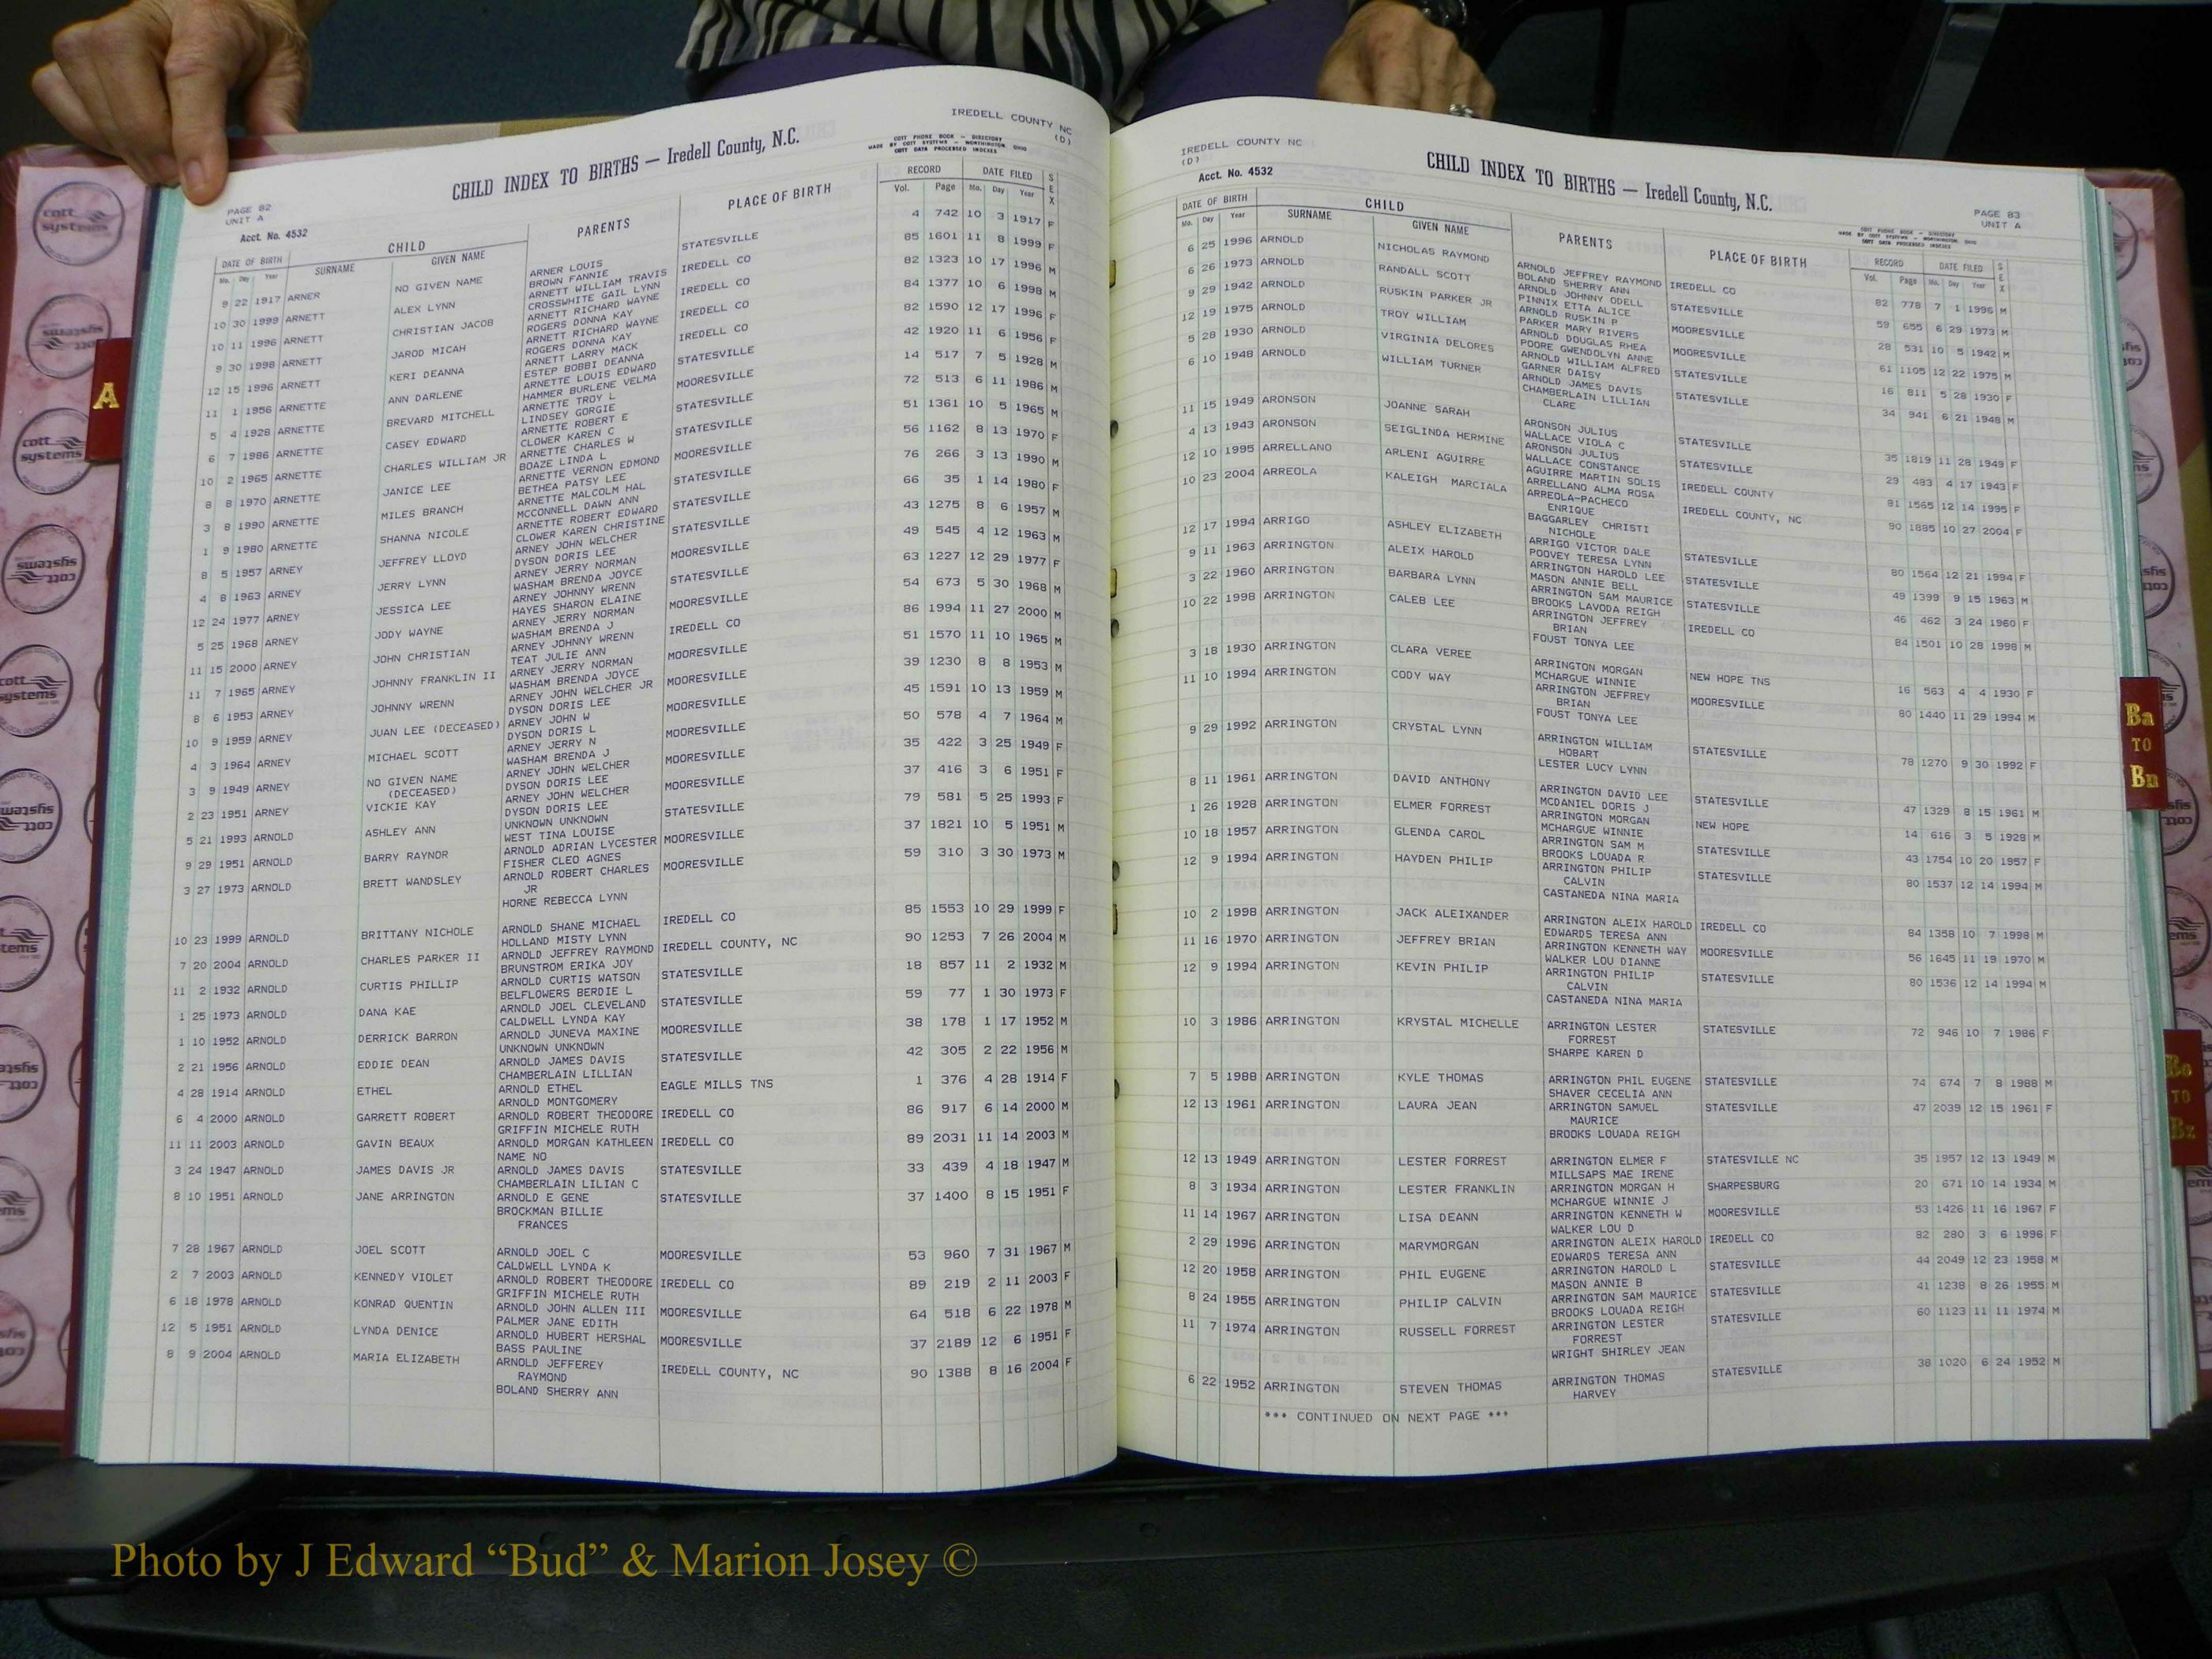 IREDELL COUNTY NC
(D)
CHILD INDEX TO BIRTHS — Iredell County, N.C.
COTT PHONE BOOK — DIRECTORY
MADE BY COTT SYSTEMS — WORTHINGTON OHIO
COTT DATA PROCESSED INDEXES
PAGE 82
UNIT A
Acct. No. 4532
DATE OF BIRTH CHILD PARENTS PLACE OF BIRTH RECORD DATE FILED SEX
Mo. Day Year SURNAME GIVEN NAME Vol. Page Mo. Day Year
9 22 1917 ARNER NO GIVEN NAME ARNER LOUIS STATESVILLE 4 742 10 3 1917 F
BROWN FANNIE
10 30 1999 ARNETT ALEX LYNN ARNETT WILLIAM TRAVIS IREDELL CO 85 1601 11 8 1999 F
CROSSWHITE GAIL LYNN
10 11 1996 ARNETT CHRISTIAN JACOB ARNETT RICHARD WAYNE IREDELL CO 82 1323 10 17 1996 M
ROGERS DONNA KAY
9 30 1998 ARNETT JAROD MICAH ARNETT RICHARD WAYNE IREDELL CO 84 1377 10 6 1998 M
ROGERS DONNA KAY
12 15 1996 ARNETT KERI DEANNA ARNETT LARRY MACK IREDELL CO 82 1590 12 17 1996 F
ESTEP BOBBI DEANNA
11 1 1956 ARNETTE ANN DARLENE ARNETTE LOUIS EDWARD STATESVILLE 42 1920 11 6 1956 F
HAMMER BURLENE VELMA
5 4 1928 ARNETTE BREVARD MITCHELL ARNETTE TROY L MOORESVILLE 14 517 7 5 1928 M
LINDSEY GORGIE
6 7 1986 ARNETTE CASEY EDWARD ARNETTE ROBERT E STATESVILLE 72 513 6 11 1986 M
CLOWER KAREN C
10 2 1965 ARNETTE CHARLES WILLIAM JR ARNETTE CHARLES W STATESVILLE 51 1361 10 5 1965 M
BOAZE LINDA L
8 8 1970 ARNETTE JANICE LEE ARNETTE VERNON EDMOND MOORESVILLE 56 1162 8 13 1970 F
BETHEA PATSY LEE
3 8 1990 ARNETTE MILES BRANCH ARNETTE MALCOLM HAL STATESVILLE 76 266 3 13 1990 M
MCCONNELL DAWN ANN
1 9 1980 ARNETTE SHANNA NICOLE ARNETTE ROBERT EDWARD STATESVILLE 66 35 1 14 1980 F
CLOWER KAREN CHRISTINE
8 5 1957 ARNEY JEFFREY LLOYD ARNEY JOHN WELCHER 43 1275 8 6 1957 M
DYSON DORIS LEE
4 8 1963 ARNEY JERRY LYNN ARNEY JERRY NORMAN MOORESVILLE 49 545 4 12 1963 M
WASHAM BRENDA JOYCE
12 24 1977 ARNEY JESSICA LEE ARNEY JOHNNY WRENN STATESVILLE 63 1227 12 29 1977 F
HAYES SHARON ELAINE
5 25 1968 ARNEY JODY WAYNE ARNEY JERRY NORMAN MOORESVILLE 54 673 5 30 1968 M
WASHAM BRENDA J
11 15 2000 ARNEY JOHN CHRISTIAN ARNEY JOHNNY WRENN IREDELL CO 86 1994 11 27 2000 M
TEAT JULIE ANN
11 7 1965 ARNEY JOHNNY FRANKLIN II ARNEY JERRY NORMAN MOORESVILLE 51 1570 11 10 1965 M
WASHAM BRENDA JOYCE
8 6 1953 ARNEY JOHNNY WRENN ARNEY JOHN WELCHER JR MOORESVILLE 39 1230 8 8 1953 M
DYSON DORIS LEE
10 9 1959 ARNEY JUAN LEE (DECEASED) ARNEY JOHN W MOORESVILLE 45 1591 10 13 1959 M
DYSON DORIS L
4 3 1964 ARNEY MICHAEL SCOTT ARNEY JERRY N MOORESVILLE 50 578 4 7 1964 M
WASHAM BRENDA J
3 9 1949 ARNEY NO GIVEN NAME ARNEY JOHN WELCHER MOORESVILLE 35 422 3 25 1949 F
(DECEASED) DYSON DORIS LEE
2 23 1951 ARNEY VICKIE KAY ARNEY JOHN WELCHER MOORESVILLE 37 416 3 6 1951 F
DYSON DORIS LEE
5 21 1993 ARNOLD ASHLEY ANN UNKNOWN UNKNOWN STATESVILLE 79 581 5 25 1993 F
WEST TINA LOUISE
9 29 1951 ARNOLD BARRY RAYNOR ARNOLD ADRIAN LYCESTER MOORESVILLE 37 1821 10 5 1951 M
FISHER CLEO AGNES
3 27 1973 ARNOLD BRETT WANDSLEY ARNOLD ROBERT CHARLES MOORESVILLE 59 310 3 30 1973 M
JR
HORNE REBECCA LYNN
10 23 1999 ARNOLD BRITTANY NICHOLE ARNOLD SHANE MICHAEL IREDELL CO 85 1553 10 29 1999 F
HOLLAND MISTY LYNN
7 20 2004 ARNOLD CHARLES PARKER II ARNOLD JEFFREY RAYMOND IREDELL COUNTY, NC 90 1253 7 26 2004 M
BRUNSTROM ERIKA JOY
11 2 1932 ARNOLD CURTIS PHILLIP ARNOLD CURTIS WATSON STATESVILLE 18 857 11 2 1932 M
BELFLOWERS BERDIE L
1 25 1973 ARNOLD DANA KAE ARNOLD JOEL CLEVELAND STATESVILLE 59 77 1 30 1973 F
CALDWELL LYNDA KAY
1 10 1952 ARNOLD DERRICK BARRON ARNOLD JUNEVA MAXINE MOORESVILLE 38 178 1 17 1952 M
UNKNOWN UNKNOWN
2 21 1956 ARNOLD EDDIE DEAN ARNOLD JAMES DAVIS STATESVILLE 42 305 2 22 1956 M
CHAMBERLAIN LILLIAN
4 28 1914 ARNOLD ETHEL ARNOLD ETHEL EAGLE MILLS TNS 1 376 4 28 1914 F
ARNOLD MONTGOMERY
6 4 2000 ARNOLD GARRETT ROBERT ARNOLD ROBERT THEODORE IREDELL CO 86 917 6 14 2000 M
GRIFFIN MICHELE RUTH
11 11 2003 ARNOLD GAVIN BEAUX ARNOLD MORGAN KATHLEEN IREDELL CO 89 2031 11 14 2003 M
NAME NO
3 24 1947 ARNOLD JAMES DAVIS JR ARNOLD JAMES DAVIS STATESVILLE 33 439 4 18 1947 M
CHAMBERLAIN LILIAN C
8 10 1951 ARNOLD JANE ARRINGTON ARNOLD E GENE STATESVILLE 37 1400 8 15 1951 F
BROCKMAN BILLIE
FRANCES
7 28 1967 ARNOLD JOEL SCOTT ARNOLD JOEL C MOORESVILLE 53 960 7 31 1967 M
CALDWELL LYNDA K
2 7 2003 ARNOLD KENNEDY VIOLET ARNOLD ROBERT THEODORE IREDELL CO 89 219 2 11 2003 F
GRIFFIN MICHELE RUTH
6 18 1978 ARNOLD KONRAD QUENTIN ARNOLD JOHN ALLEN III MOORESVILLE 64 518 6 22 1978 M
PALMER JANE EDITH
12 5 1951 ARNOLD LYNDA DENICE ARNOLD HUBERT HERSHAL MOORESVILLE 37 2189 12 6 1951 F
BASS PAULINE
8 9 2004 ARNOLD MARIA ELIZABETH ARNOLD JEFFEREY IREDELL COUNTY, NC 90 1388 8 16 2004 F
RAYMOND
BOLAND SHERRY ANN
IREDELL COUNTY NC
(D)
Acct. No. 4532
CHILD INDEX TO BIRTHS — Iredell County, N.C.
PAGE 83
UNIT A
COTT PHONE BOOK — DIRECTORY
MADE BY COTT SYSTEMS — WORTHINGTON OHIO
COTT DATA PROCESSED INDEXES
DATE OF BIRTH CHILD PARENTS PLACE OF BIRTH RECORD DATE FILED SEX
Mo. Day Year SURNAME GIVEN NAME Vol. Page Mo. Day Year
6 25 1996 ARNOLD NICHOLAS RAYMOND ARNOLD JEFFREY RAYMOND IREDELL CO 82 778 7 1 1996 M
BOLAND SHERRY ANN
6 26 1973 ARNOLD RANDALL SCOTT ARNOLD JOHNNY ODELL STATESVILLE 59 655 6 29 1973 M
PINNIX ETTA ALICE
9 29 1942 ARNOLD RUSKIN PARKER JR ARNOLD RUSKIN P MOORESVILLE 28 531 10 5 1942 M
PARKER MARY RIVERS
12 19 1975 ARNOLD TROY WILLIAM ARNOLD DOUGLAS RHEA MOORESVILLE 61 1105 12 22 1975 M
POORE GWENDOLYN ANNE
5 28 1930 ARNOLD VIRGINIA DELORES ARNOLD WILLIAM ALFRED STATESVILLE 16 811 5 28 1930 F
GARNER DAISY
6 10 1948 ARNOLD WILLIAM TURNER ARNOLD JAMES DAVIS STATESVILLE 34 941 6 21 1948 M
CHAMBERLAIN LILLIAN
CLARE
11 15 1949 ARONSON JOANNE SARAH ARONSON JULIUS STATESVILLE 35 1819 11 28 1949 F
WALLACE VIOLA C
4 13 1943 ARONSON SEIGLINDA HERMINE ARONSON JULIUS STATESVILLE 29 483 4 17 1943 F
WALLACE CONSTANCE
12 10 1995 ARRELLANO ARLENI AGUIRRE AGUIRRE MARTIN SOLIS IREDELL COUNTY 81 1565 12 14 1995 F
ARRELLANO ALMA ROSA
10 23 2004 ARREOLA KALEIGH MARCIALA ARREOLA-PACHECO IREDELL COUNTY, NC 90 1885 10 27 2004 F
ENRIQUE
BAGGARLEY CHRISTI
NICHOLE
12 17 1994 ARRIGO ASHLEY ELIZABETH ARRIGO VICTOR DALE STATESVILLE 80 1564 12 21 1994 F
POOVEY TERESA LYNN
9 11 1963 ARRINGTON ALEIX HAROLD ARRINGTON HAROLD LEE STATESVILLE 49 1399 9 15 1963 M
MASON ANNIE BELL
3 22 1960 ARRINGTON BARBARA LYNN ARRINGTON SAM MAURICE STATESVILLE 46 462 3 24 1960 F
BROOKS LAVODA REIGH
10 22 1998 ARRINGTON CALEB LEE ARRINGTON JEFFREY IREDELL CO 84 1501 10 28 1998 M
BRIAN
FOUST TONYA LEE
3 18 1930 ARRINGTON CLARA VEREE ARRINGTON MORGAN NEW HOPE TNS 16 563 4 4 1930 F
MCHARGUE WINNIE
11 10 1994 ARRINGTON CODY WAY ARRINGTON JEFFREY MOORESVILLE 80 1440 11 29 1994 M
BRIAN
FOUST TONYA LEE
9 29 1992 ARRINGTON CRYSTAL LYNN ARRINGTON WILLIAM STATESVILLE 78 1270 9 30 1992 F
HOBART
LESTER LUCY LYNN
8 11 1961 ARRINGTON DAVID ANTHONY ARRINGTON DAVID LEE STATESVILLE 47 1329 8 15 1961 M
MCDANIEL DORIS J
1 26 1928 ARRINGTON ELMER FORREST ARRINGTON MORGAN NEW HOPE 14 616 3 5 1928 M
MCHARGUE WINNIE
10 18 1957 ARRINGTON GLENDA CAROL ARRINGTON SAM M STATESVILLE 43 1754 10 20 1957 F
BROOKS LOUADA R
12 9 1994 ARRINGTON HAYDEN PHILIP ARRINGTON PHILIP STATESVILLE 80 1537 12 14 1994 M
CALVIN
CASTANEDA NINA MARIA
10 2 1998 ARRINGTON JACK ALEIXANDER ARRINGTON ALEIX HAROLD IREDELL CO 84 1358 10 7 1998 M
EDWARDS TERESA ANN
11 16 1970 ARRINGTON JEFFREY BRIAN ARRINGTON KENNETH WAY MOORESVILLE 56 1645 11 19 1970 M
WALKER LOU DIANNE
12 9 1994 ARRINGTON KEVIN PHILIP ARRINGTON PHILIP STATESVILLE 80 1536 12 14 1994 M
CALVIN
CASTANEDA NINA MARIA
10 3 1986 ARRINGTON KRYSTAL MICHELLE ARRINGTON LESTER STATESVILLE 72 946 10 7 1986 F
FORREST
SHARPE KAREN D
7 5 1988 ARRINGTON KYLE THOMAS ARRINGTON PHIL EUGENE STATESVILLE 74 674 7 8 1988 M
SHAVER CECELIA ANN
12 13 1961 ARRINGTON LAURA JEAN ARRINGTON SAMUEL STATESVILLE 47 2039 12 15 1961 F
MAURICE
BROOKS LOUADA REIGH
12 13 1949 ARRINGTON LESTER FORREST ARRINGTON ELMER F STATESVILLE NC 35 1957 12 13 1949 M
MILLSAPS MAE IRENE
8 3 1934 ARRINGTON LESTER FRANKLIN ARRINGTON MORGAN H SHARPESBURG 20 671 10 14 1934 M
MCHARGUE WINNIE J
11 14 1967 ARRINGTON LISA DEANN ARRINGTON KENNETH W MOORESVILLE 53 1426 11 16 1967 F
WALKER LOU D
2 29 1996 ARRINGTON MARYMORGAN ARRINGTON ALEIX HAROLD IREDELL CO 82 280 3 6 1996 F
EDWARDS TERESA ANN
12 20 1958 ARRINGTON PHIL EUGENE ARRINGTON HAROLD L STATESVILLE 44 2049 12 23 1958 M
MASON ANNIE B
8 24 1955 ARRINGTON PHILIP CALVIN ARRINGTON SAM MAURICE STATESVILLE 41 1238 8 26 1955 M
BROOKS LOUADA REIGH
11 7 1974 ARRINGTON RUSSELL FORREST ARRINGTON LESTER STATESVILLE 60 1123 11 11 1974 M
FORREST
WRIGHT SHIRLEY JEAN
6 22 1952 ARRINGTON STEVEN THOMAS ARRINGTON THOMAS STATESVILLE 38 1020 6 24 1952 M
HARVEY
*** CONTINUED ON NEXT PAGE ***
A
Ba
TO
Bn
Bo
TO
Bz
cott
systems
Photo by J Edward “Bud” & Marion Josey ©